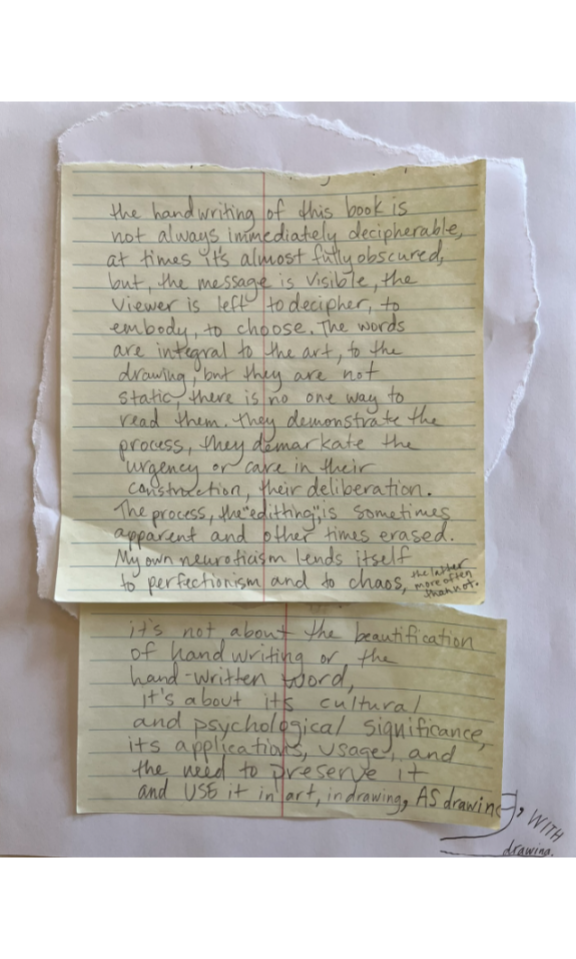 the handwriting of this book is
not always immediately decipherable,
at times it's almost fully obscured,
but, the message is visible, the
viewer is left to decipher, to
embody, to choose. The words
are integral to the art, to the
drawing, but they are not
static, there is no one way to
read them. they demonstrate the
process, they demarkate the
urgency or care in their
construction, their deliberation.
The process, the "editting", is sometimes
apparent and other times erased.
My own neuroticism lends itself
to perfectionism and to chaos, the latter
more often
than not.
it's not about the beautification
of handwriting or the
hand-written word,
it's about its cultural
and psychological significance,
its applications, usage, and
the need to preserve it
and USE it in art, in drawing, AS drawing, WITH
drawing.